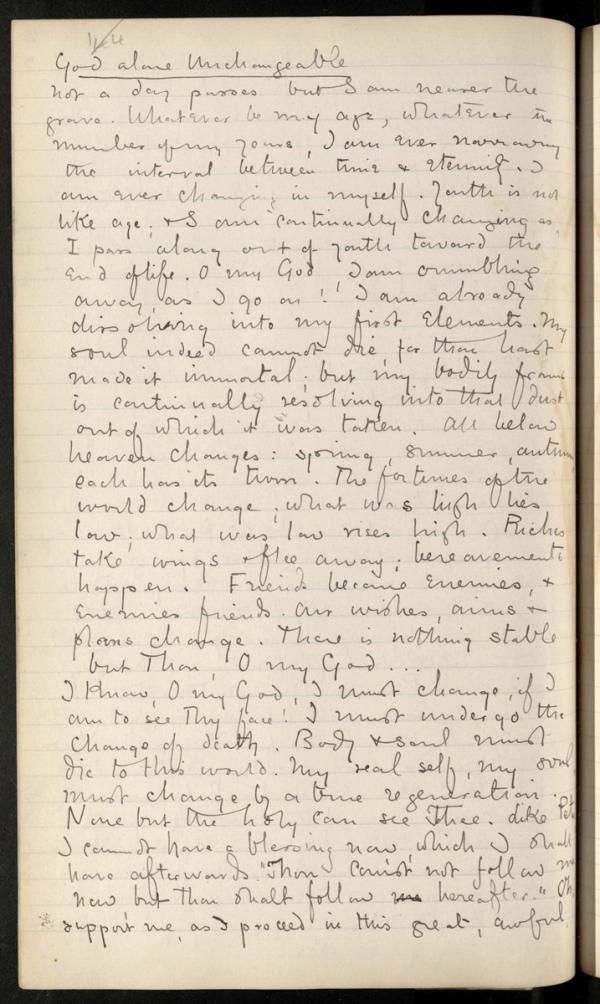 God alone Unchangeable
Not a day passes but I am nearer the
grave. Whatever be my age, whatever the
number of my years, I am ever narrowing
the interval between time & Eternity. I
am ever changing in myself. Youth is not
like age; & I am continually changing as
I pass along out of youth toward the
End of life. O my God, I am crumbling
away, as I go on! I am already
dissolving into my first Elements. My
soul indeed cannot die, for Thou hast
made it immortal; but my bodily frame
is continually resolving into that dust
out of which it was taken. All below
heaven changes: spring, summer, autumn
each has its turn. The fortunes of the
world change; what was high lies
low; what was low rises high. Riches
take wings & flee away; bereavements
happen. Friends become Enemies, &
Enemies friends. Our wishes, aims &
plans change. There is nothing stable
but Thou, O my God ...
I Know, O my God, I must change, if I
am to see Thy face! I must undergo the
Change of death. Body & soul must
die to this world. My real self, my soul,
must change by a true regeneration.
None but the holy can see Thee. Like Peter
I cannot have a blessing now, which I shall
have afterwards. "Thou canst not follow me
now but thou shalt follow hereafter." Oh,
support me, as I proceed in this great, awful